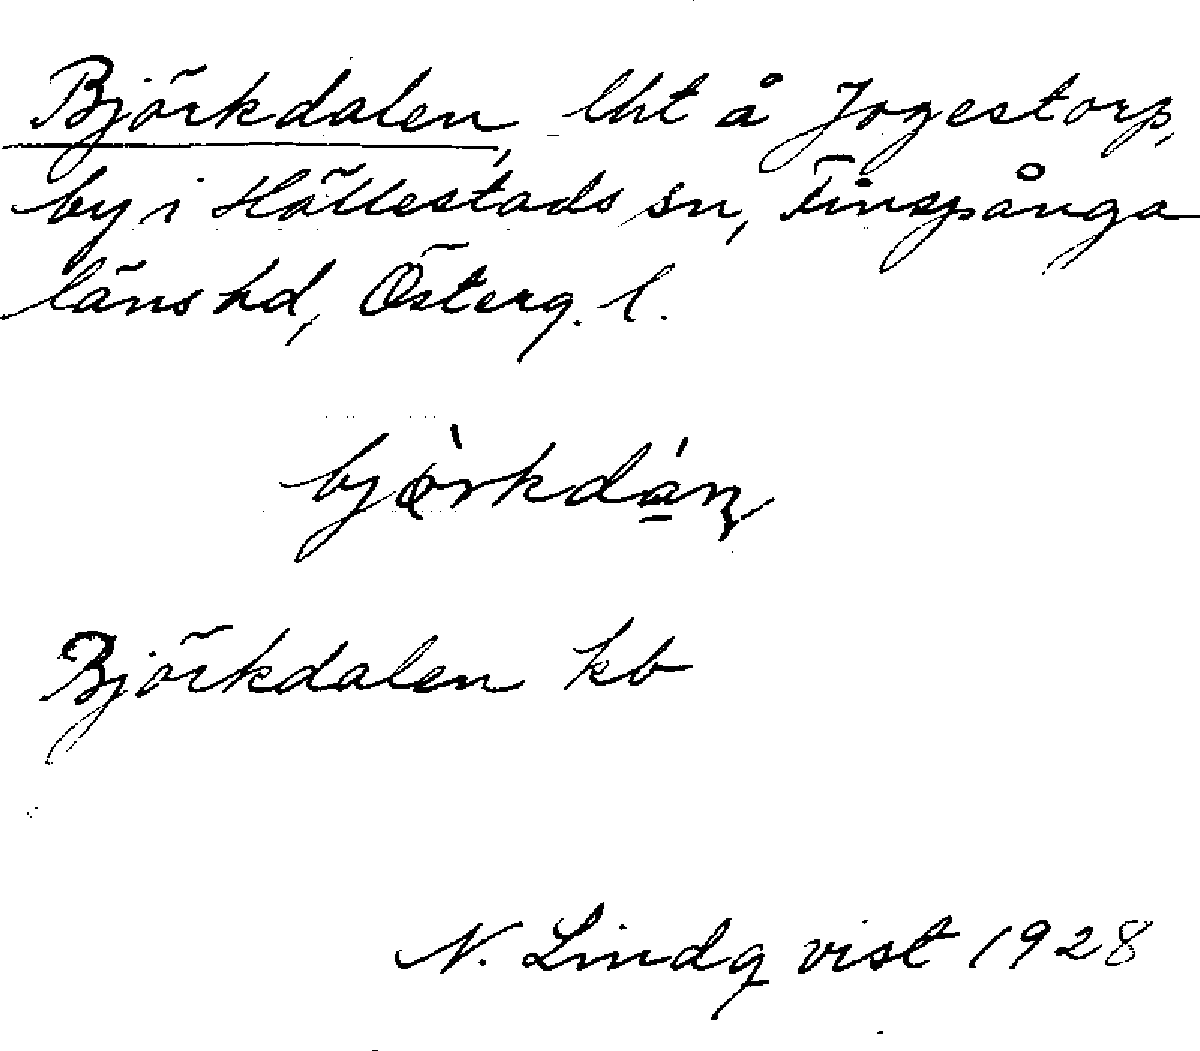 Björkdalen, lht å Jogestorp,
by i Hällestads sn, Finspånga
läns hd, Österg. l.
Björkdalen kb
N. Lindqvist 1928